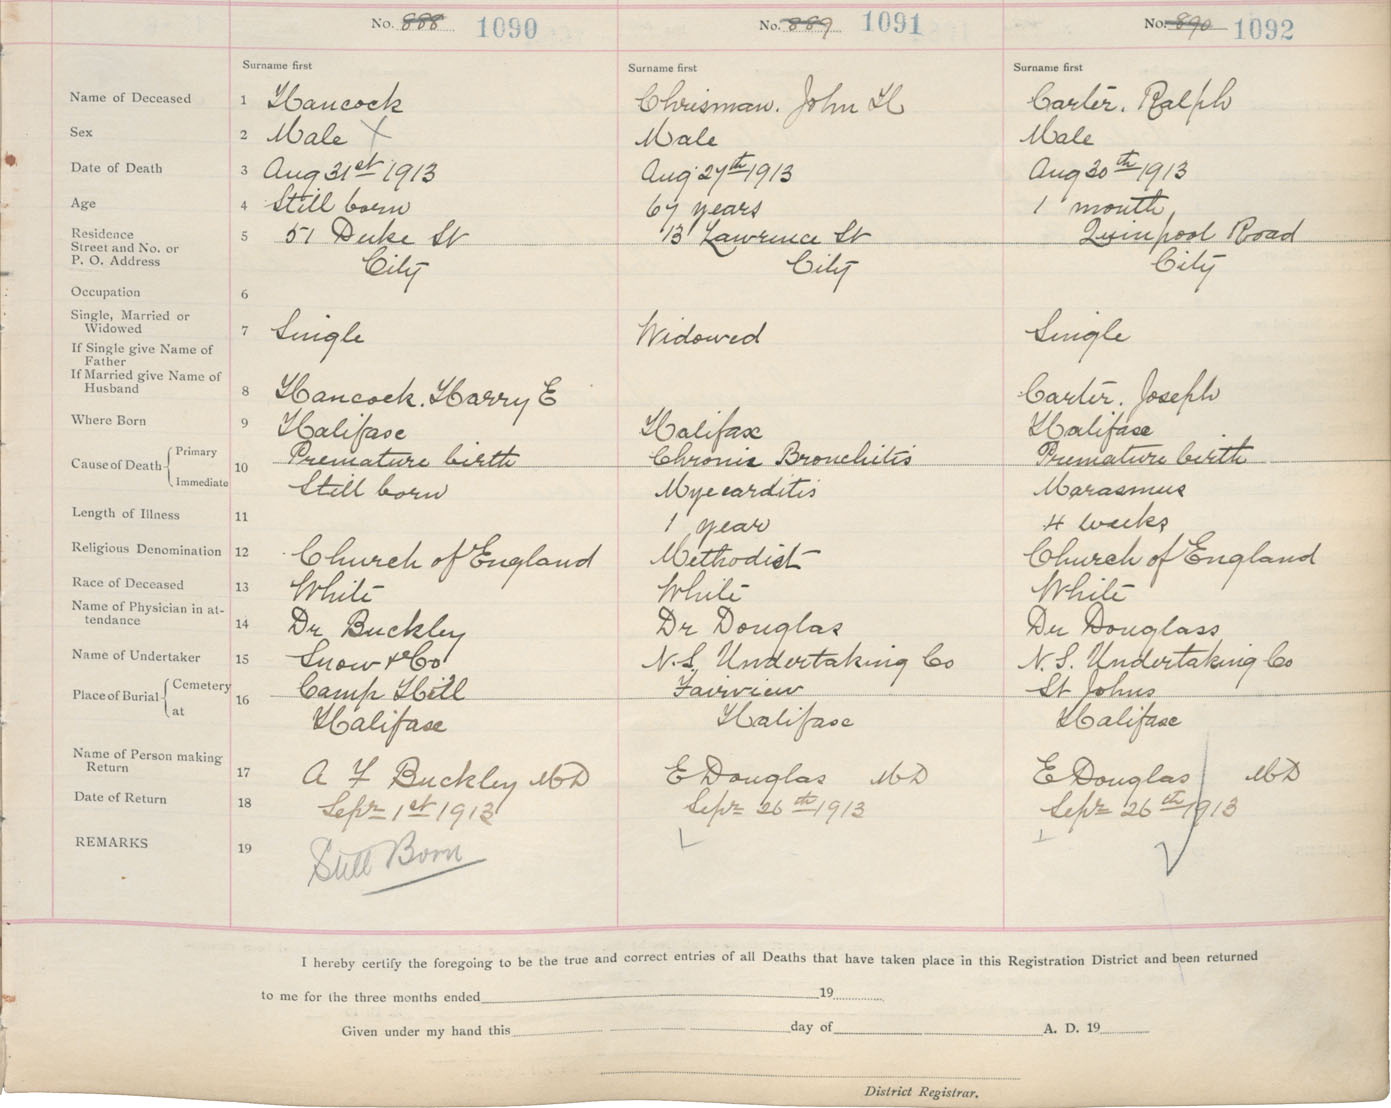 No. 888 1090 No. 889 1091 No. 890 1092
Surname first Surname first Surname first
Name of Deceased 1 Hancock Chrisman. John H Carter. Ralph
Sex 2 Male X Male Male
Date of Death 3 Aug 31st 1913 Aug 27th 1913 Aug 30th 1913
Age 4 Still born 67 years 1 month
Residence
Street and No. or 5 51 Duke St 13 Lawrence St Road
P. O. Address City City City
Occupation 6
Single, Married or
Widowed 7 Single Widowed Single
If Single give Name of
Father
If Married give Name of
Husband 8 Hancock. Harry E Carter. Joseph
Where Born 9 Halifax Halifax Halifax
Cause of Death Primary 10 Premature birth Chronic Bronchitis Premature birth
Immediate Still born Myecarditis Marasmus
Length of Illness 11 1 year 4 weeks
Religious Denomination 12 Church of England Methodist Church of England
Race of Deceased 13 White White White
Name of Physician in at-
tendance 14 Dr Buckley Dr Douglas Dr Douglass
Name of Undertaker 15 Snow & Co N.S. Undertaking Co N.S. Undertaking Co
Place of Burial Cemetery 16 Camp Hill Fairview St Johns
at Halifax Halifax Halifax
Name of Person making
Return 17 A F Buckley MD E Douglas MD E Douglas MD
Date of Return 18 Sepr 1st 1913 Sepr 26th 1913 Sepr 26th 1913
REMARKS 19 Still Born
I hereby certify the foregoing to be the true and correct entries of all Deaths that have taken place in this Registration District and been returned
to me for the three months ended 19
Given under my hand this day of A. D. 19
District Registrar.